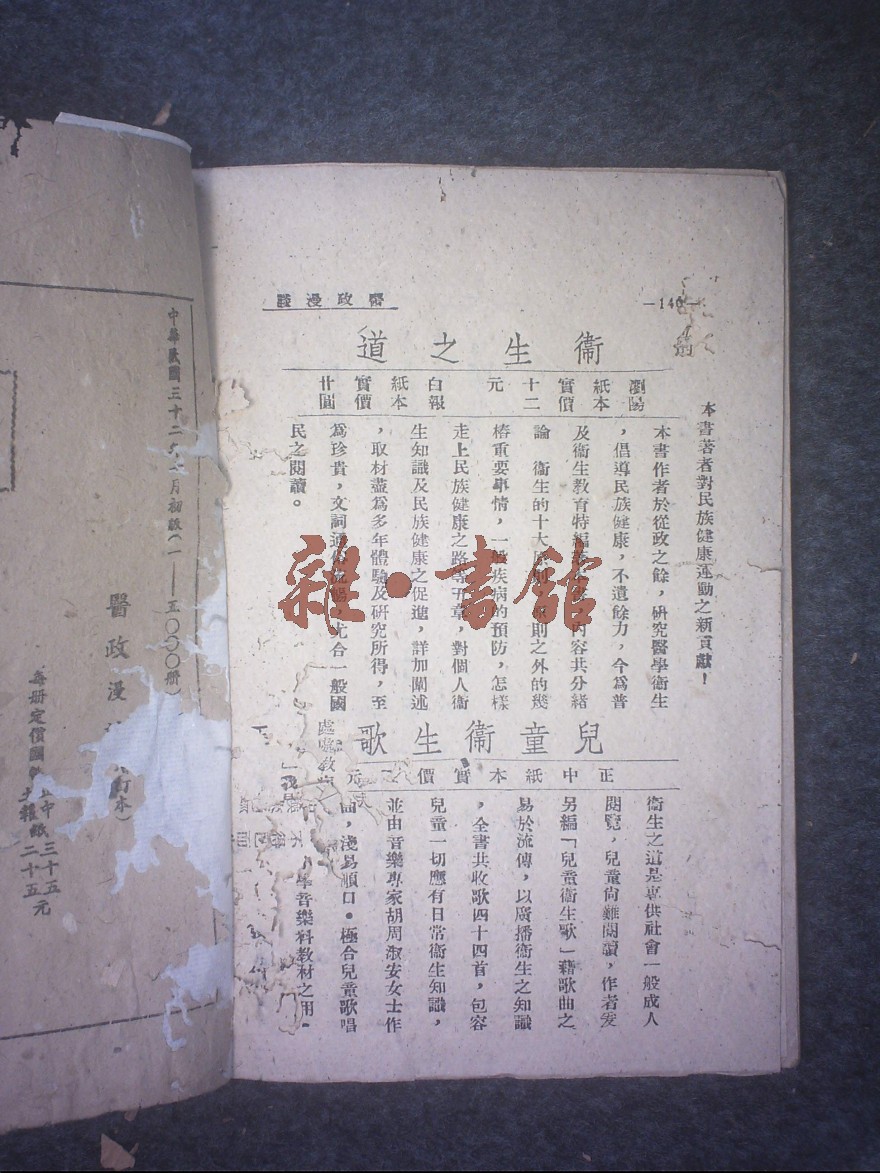 —140—
醫政漫談
本書著者對民族健康運動之新貢獻！
衞生之道
瀏陽紙本實價十二元
白報紙本實價廿圓
本書作者於從政之餘，研究醫學衞生
，倡導民族健康，不遺餘力，今爲普
及衞生教育特編 內容共分緒
論 衞生的十大 則之外的幾
樁重要事情，一般疾病的預防，怎樣
走上民族健康之路等五章，對個人衞
生知識及民族健康之促進，詳加闡述
，取材盡爲多年體驗及研究所得，至
爲珍貴，文詞通俗 尤合一般國
民之閱讀。
兒童衞生歌
正中紙本實價 元
衞生之道是專供社會一般成人
閱覽，兒童尙難閱讀，作者爰
另編「兒童衞生歌」藉歌曲之
易於流傳，以廣播衞生之知識
，全書共收歌四十四首，包容
兒童一切應有日常衞生知識，
並由音樂專家胡周淑安女士作
曲，淺易順口・極合兒童歌唱
學音樂科教材之用・
中華民國三十二年 月初版（一——五〇〇〇册）
醫政漫
每册定價國 中紙三十五
土報紙二十五元
雜·書館